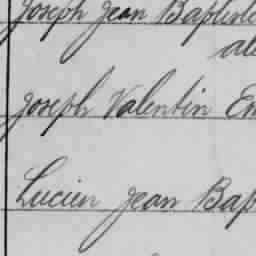 Joseph Jean Baptiste
al
Joseph Valentin Em
Lucien Jean Bap